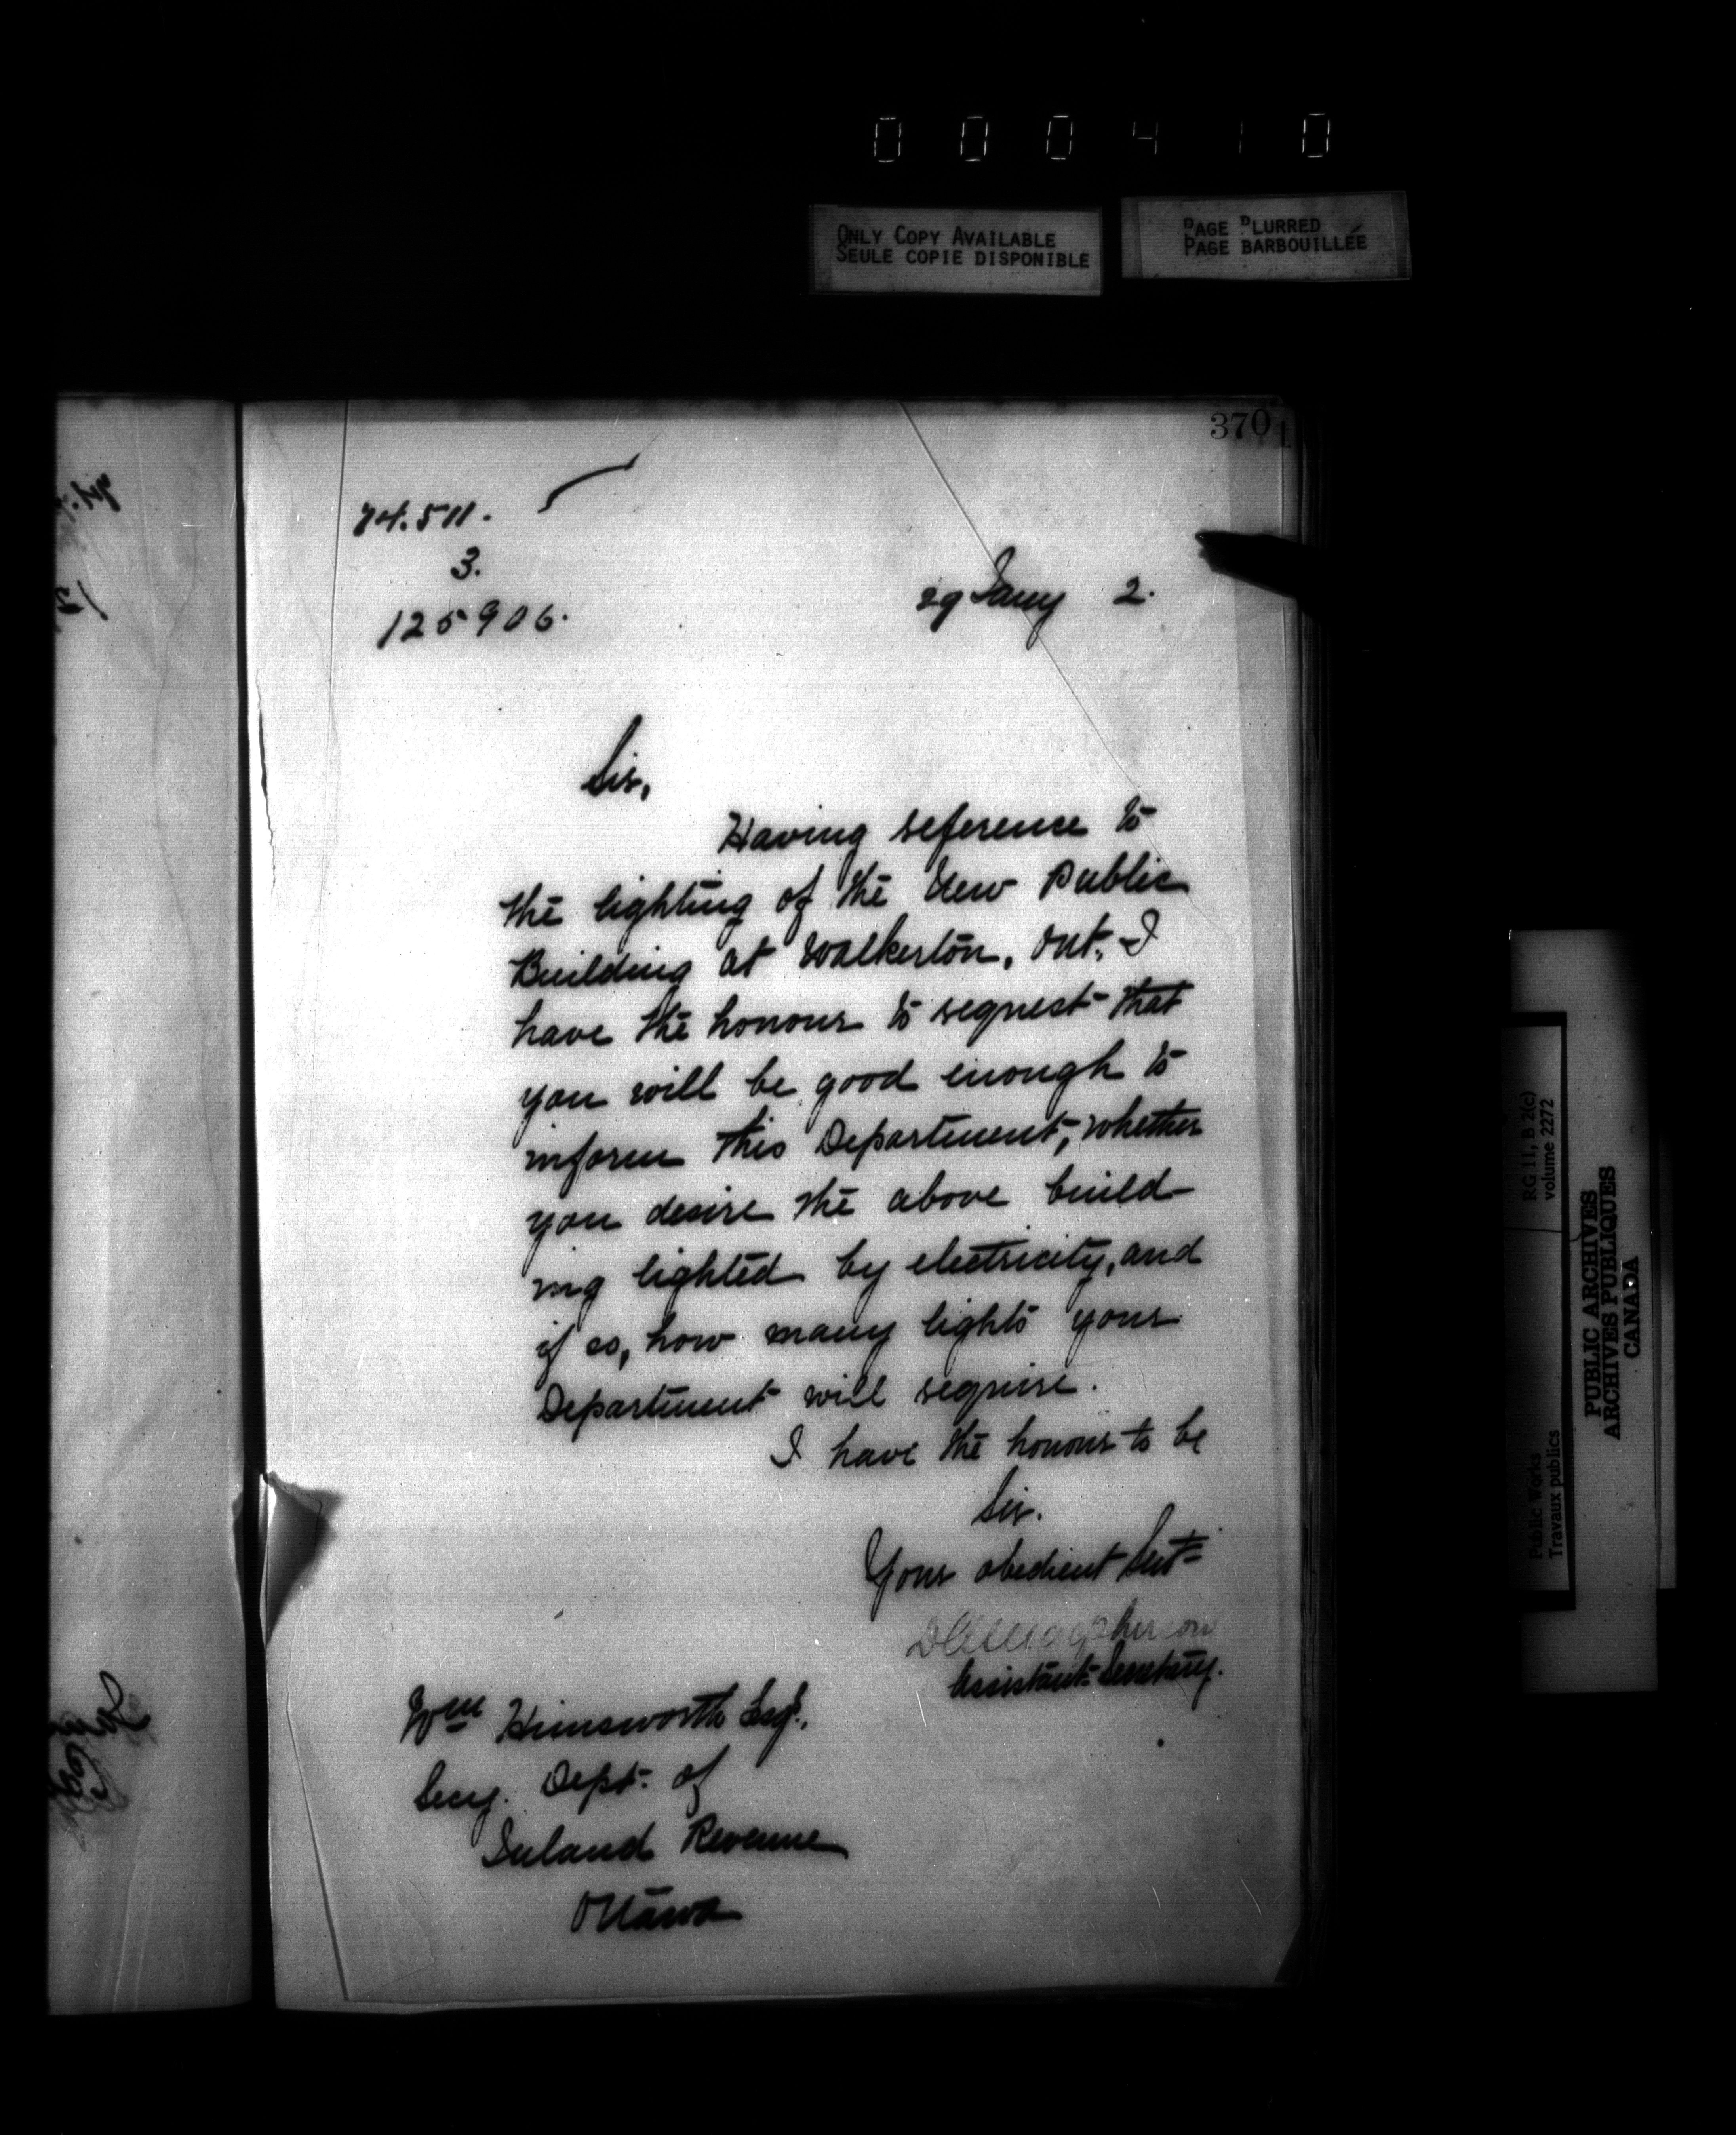 0 0 0 4 1 0
ONLY COPY AVAILABLE
SEULE COPIE DISPONIBLE
PAGE BLURRED
PAGE BARBOUILLÉE
370
74.511.
3.
125906.
29 Jany 2.
Sir,
Having reference to
the lighting of the New Public
Building at Walkerton, Ont., I
have the honour to request that
you will be good enough to
inform this Department, whether
you desire the above build-
ing lighted by electricity, and
if so, how many lights your
Department will require.
I have the honour to be
Sir.
Your obedient Servt
Macpherson
Assistant Secretary.
Wm Himsworth Esq.,
Secy. Dept. of
Inland Revenue
Ottawa
Public Works
Travaux publics
RG 11, B 2(c)
volume 2272
PUBLIC ARCHIVES
ARCHIVES PUBLIQUES
CANADA